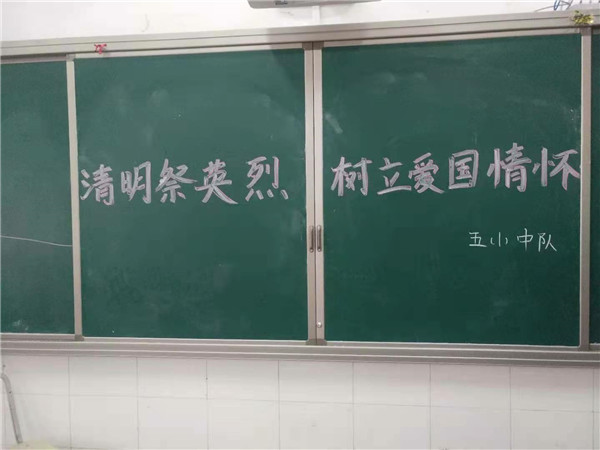 清明祭英烈 树立爱国情怀
五小中队